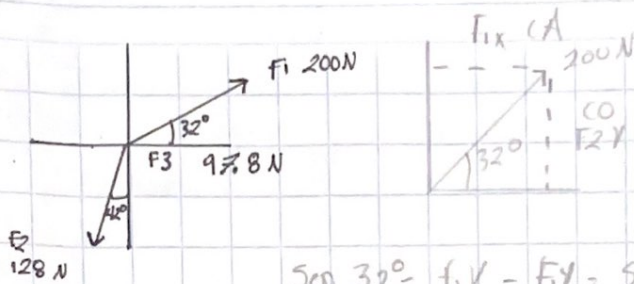 F1 200N
32°
F3 97.8 N
42°
F2
128 N
F1x CA
200N
CO
F2Y
32°
Sen 32° =